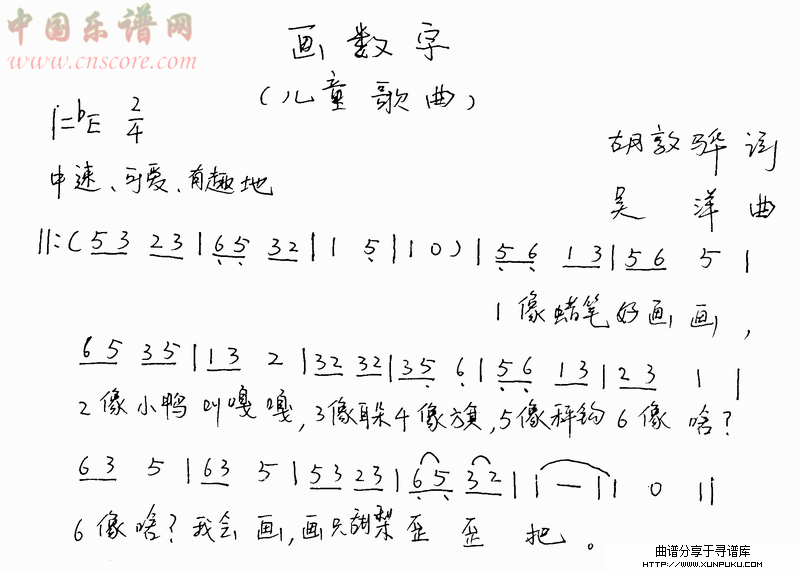 中国乐谱网
www.cnscore.com
画数字
(儿童歌曲)
1=♭E 2/4
胡敦骅 词
中速、可爱、有趣地
吴 洋 曲
‖:(5 3 2 3 | 6 5 3 2 | 1 5 | 1 0) | 5 6 1 3 | 5 6 5 |
1像蜡笔好画画,
6 5 3 5 | 1 3 2 | 3 2 3 2 | 3 5 6 | 5 6 1 3 | 2 3 1 |
2像小鸭叫嘎嘎,3像耳朵4像旗,5像秤钩6像啥?
6 3 5 | 6 3 5 | 5 3 2 3 | 6 5 3 2 | 1 — | 1 0 ‖
6像啥?我会画,画只甜梨歪歪把。
曲谱分享于寻谱库
HTTP://WWW.XUNPUKU.COM